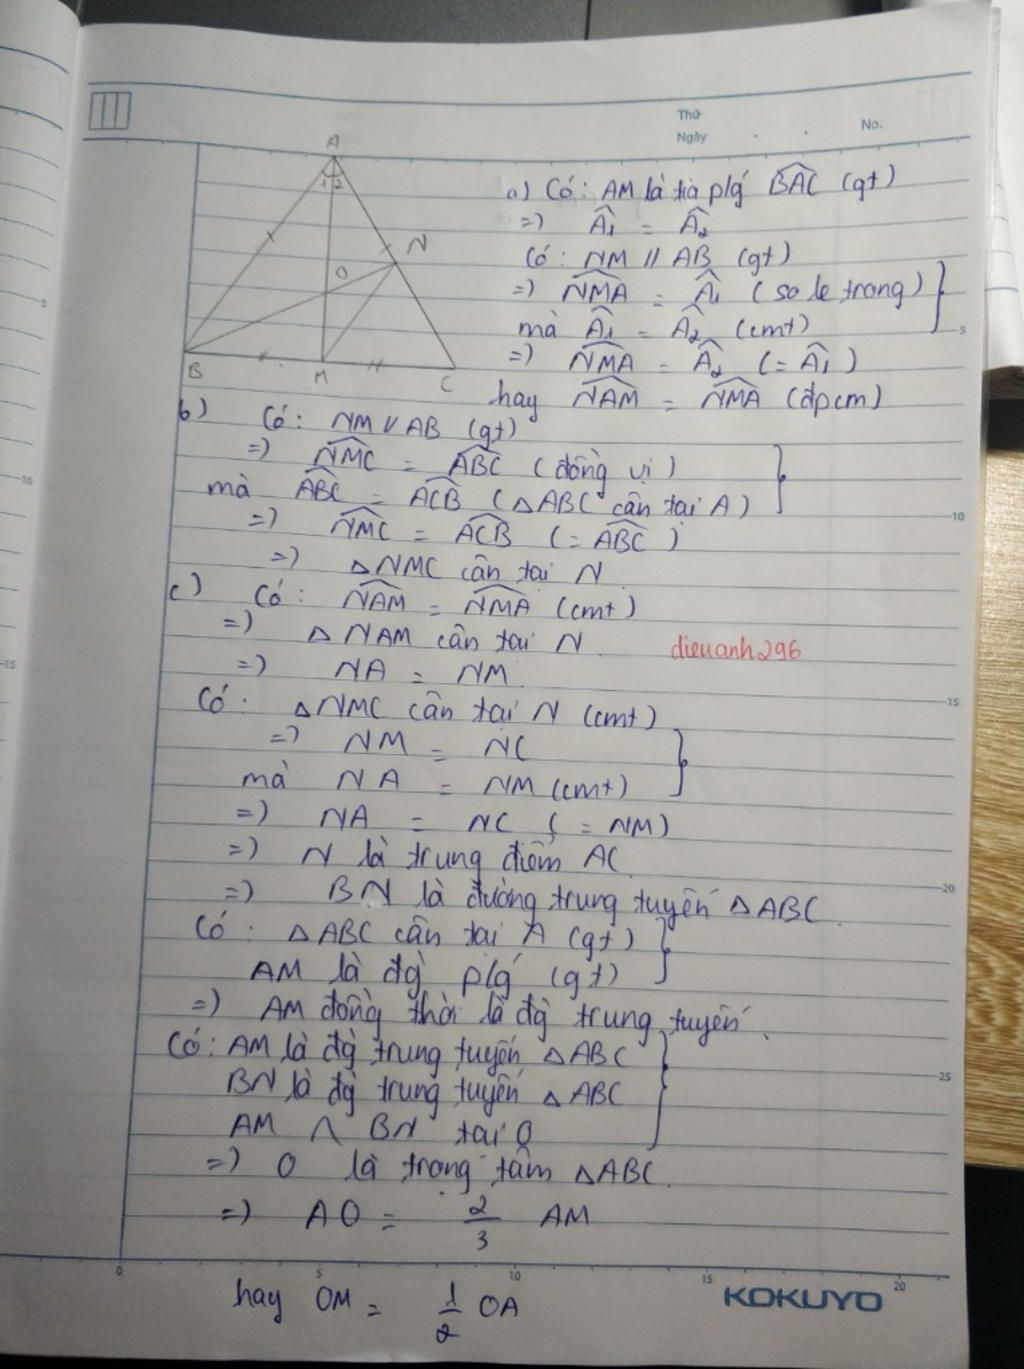 Thứ
Ngày
No.
A
1 2
N
O
B M C
a) Có: AM là tia plg BAC (gt)
=) A1 = A2
Có: NM // AB (gt)
=) NMA = A1 (so le trong)
mà A1 = A2 (cmt)
=) NMA = A2 (= A1)
hay NAM = NMA (đpcm)
b) Có: NM // AB (gt)
=) NMC = ABC (đồng vị)
mà ABC = ACB (△ABC cân tại A)
=) NMC = ACB (= ABC)
=) △NMC cân tại N
c) Có: NAM = NMA (cmt)
=) △NAM cân tại N.
dieuanh296
=) NA = NM.
Có: △NMC cân tại N (cmt)
=) NM = NC
mà NA = NM (cmt)
=) NA = NC (= NM)
=) N là trung điểm AC.
=) BN là đường trung tuyến △ABC.
Có: △ABC cân tại A (gt)
AM là đg` plg (gt)
=) AM đồng thời là đg` trung tuyến.
Có: AM là đg` trung tuyến △ABC
BN là đg` trung tuyến △ABC
AM ∩ BN tại O
=) O là trọng tâm △ABC.
=) AO = 2/3 AM
hay OM = 1/2 OA
5
10
15
20
25
0 5 10 15 20
KOKUYO